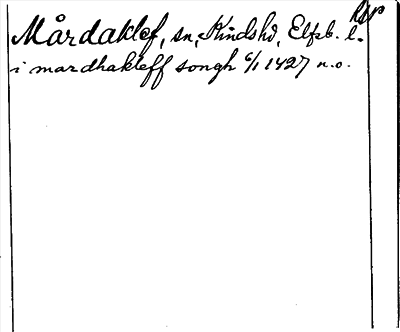 Rsp
Mårdaklef, sn, Kinds hd, Elfsb. l.
i mardhakleff songh 6/1 1427 n.o.